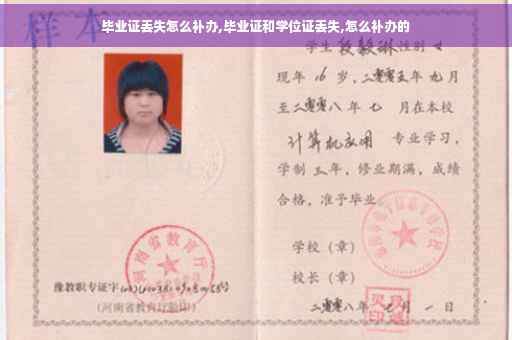 样本
毕业证丢失怎么补办,毕业证和学位证丢失,怎么补办的
学生段毅琳性别女
现年16岁,二零零五年九月
至二零零八年七月在本校
计算机应用 专业学习,
学制三年,修业期满,成绩
合格,准予毕业。
学校(章)
校长(章)
二零零八年七月一日
河南省教育厅
豫教职专证字
(河南省教育厅验印)